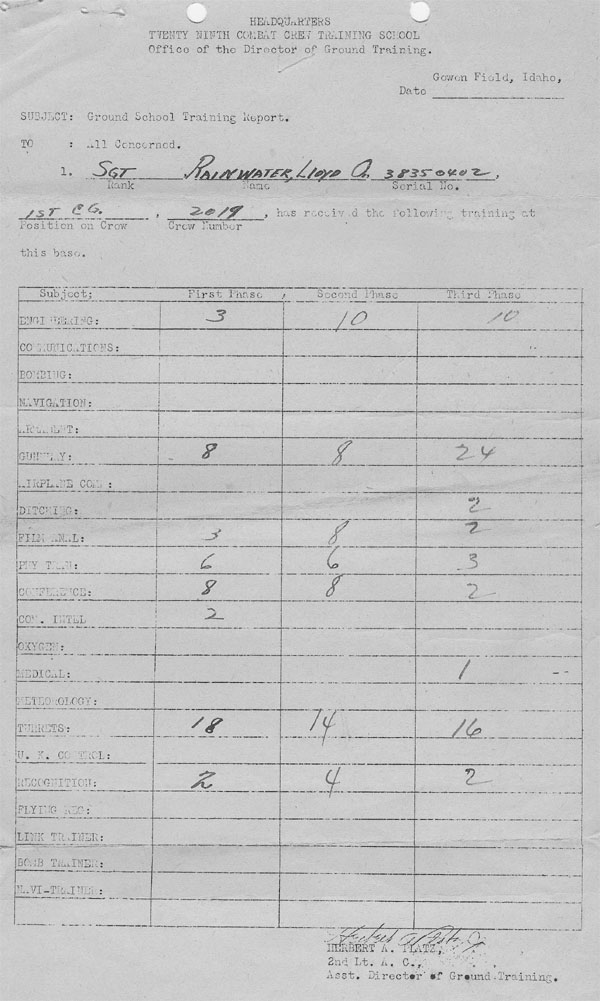 HEADQUARTERS
TWENTY NINTH COMBAT CREW TRAINING SCHOOL
Office of the Director of Ground Training.
Gowen Field, Idaho,
Date
SUBJECT: Ground School Training Report.
TO : All Concerned.
1. SGT RAINWATER, LLOYD A. 38350402,
Rank Name Serial No.
1ST EG. , 2019 , has received the following training at
Position on Crew Crew Number
this base.
Subject; First Phase , Second Phase Third Phase
ENGINEERING: 3 10 10
COMMUNICATIONS:
BOMBING:
NAVIGATION:
ARMAMENT:
GUNNERY: 8 8 24
AIRPLANE COM :
DITCHING: 2
FILM ANAL: 3 8 2
PHY TRAN: 6 6 3
CONFERENCE: 8 8 2
COM. INTEL 2
OXYGEN:
MEDICAL: 1
METEOROLOGY:
TURRETS: 18 14 16
CONTROL:
RECOGNITION: 2 4 2
FLYING REG:
LINK TRAINER:
BOMB TRAINER:
NAVI-TRAINER:
HERBERT A. PLATZ,
2nd Lt. A. C.,
Asst. Director of Ground Training.